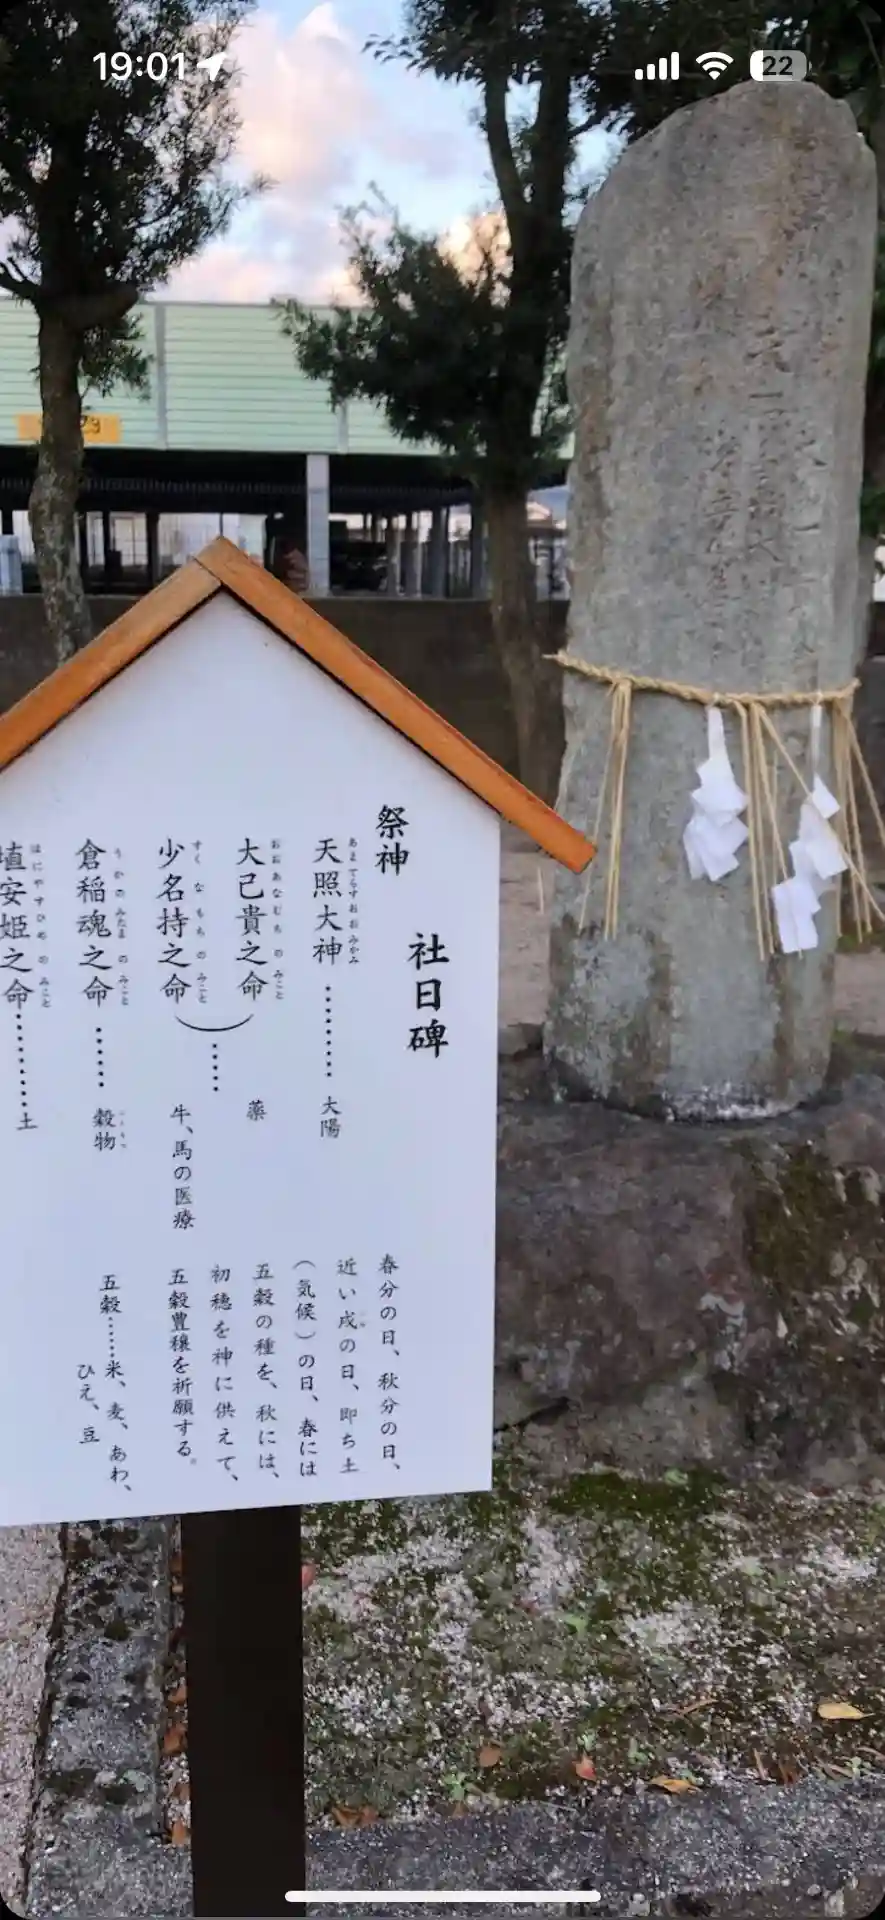 19:01
22
社日碑
祭神
天照大神………大陽
あまてらすおおみかみ
大己貴之命
おおあなむちのみこと
薬
少名持之命
すくなもものみこと
……
牛、馬の医療
倉稲魂之命……穀物
うかのみたまのみこと
こくもつ
埴安姫之命………土
はにやすひめのみこと
春分の日、秋分の日、
近い戌の日、即ち土
(気候)の日、春には
五穀の種を、秋には、
初穂を神に供えて、
五穀豊穣を祈願する。
五穀……米、麦、あわ、
ひえ、豆